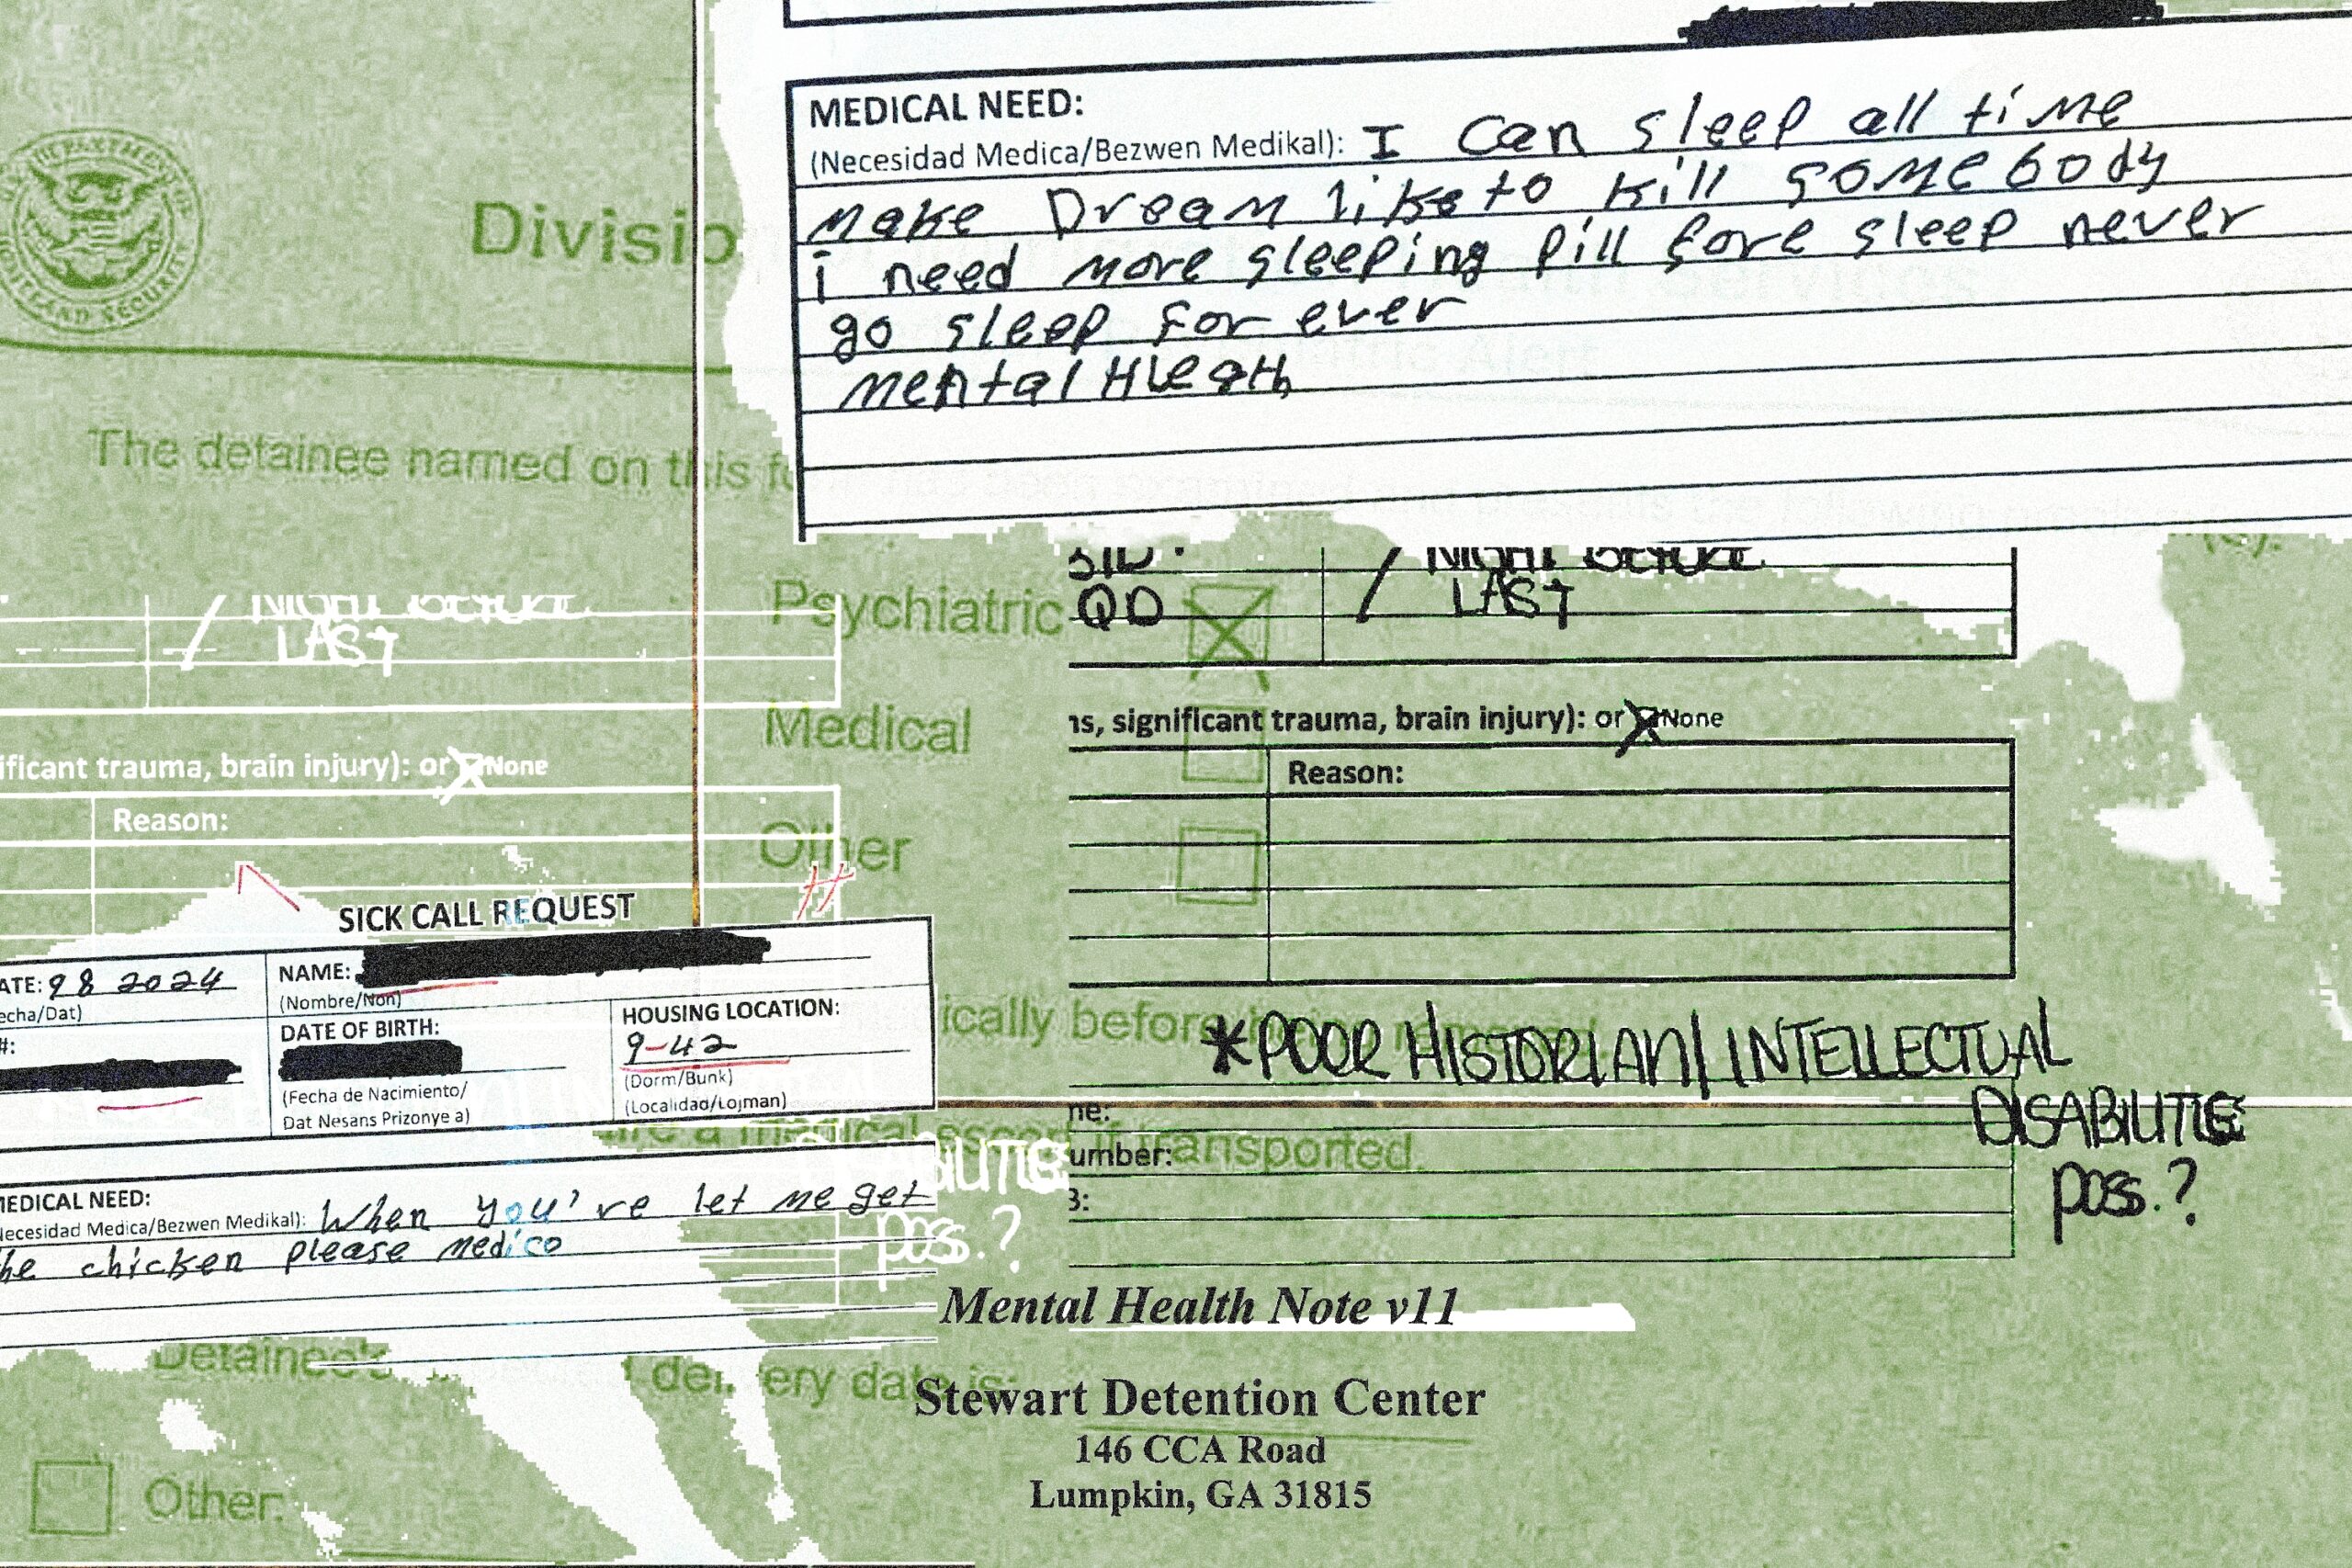 MEDICAL NEED:
(Necesidad Medica/Bezwen Medikal): I can sleep all time
make Dream like to kill somebody
i need more sleeping pill fore sleep never
go sleep for ever
mental Hleath
Divisio
The detainee named on this fo
Psychiatric
Medical
Other
QD
NIGHT BEFORE
LAST
NIGHT BEFORE
LAST
ns, significant trauma, brain injury): or None
Reason:
ificant trauma, brain injury): or None
Reason:
SICK CALL REQUEST
ATE: 98 2024
echa/Dat)
#:
NAME:
(Nombre/Non)
DATE OF BIRTH:
(Fecha de Nacimiento/
Dat Nesans Prizonye a)
HOUSING LOCATION:
9-42
(Dorm/Bunk)
(Localidad/Lojman)
MEDICAL NEED:
Necesidad Medica/Bezwen Medikal): When you've let me get
he chicken please medico
ically before
*POOR HISTORIAN/INTELLECTUAL
DISABILITIE
poss.?
ne:
a medical escort if transported.
umber:
3:
poss.?
Mental Health Note v11
Detainee's
delivery date is:
Stewart Detention Center
146 CCA Road
Lumpkin, GA 31815
Other: